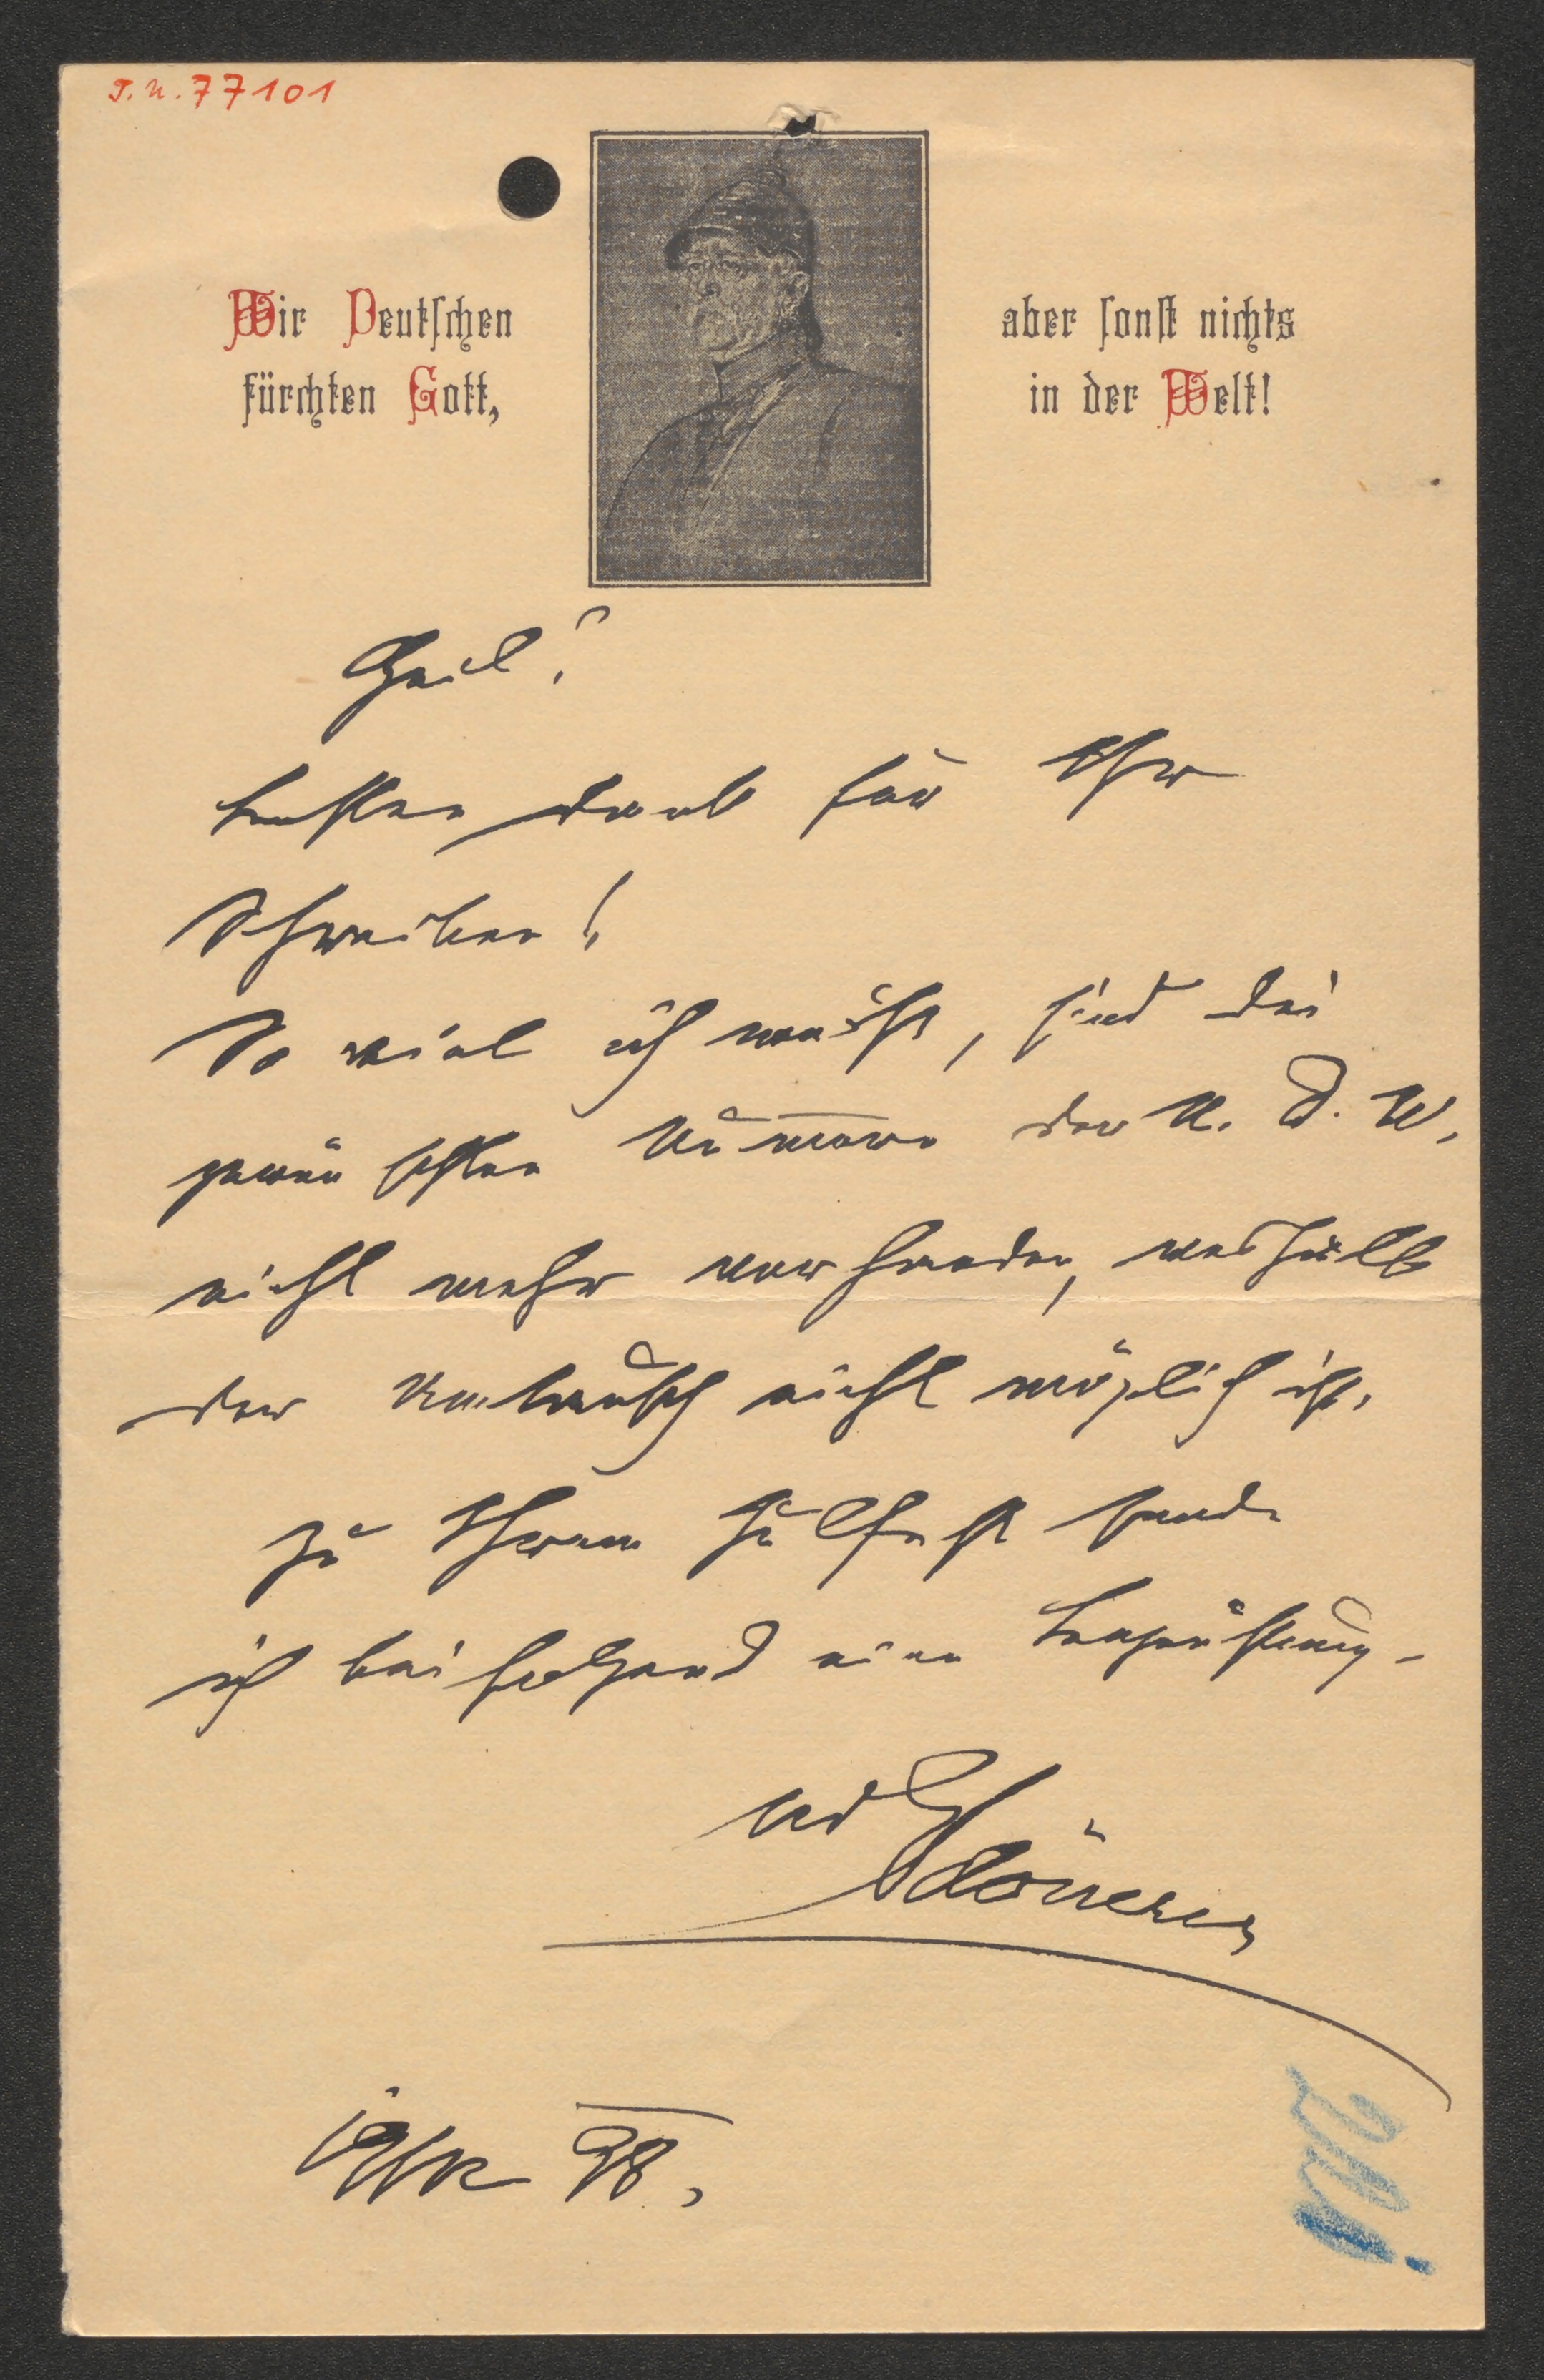 I.N. 77101
Wir Deutschen
fürchten Gott,
aber sonst nichts
in der Welt!
Heil!
besten Dank für Ihr
Schreiben!
So viel ich weiß, sind die
gewünschten Nummern der U. D. W.
nicht mehr vorhanden, weshalb
der Umtausch nicht möglich ist.
Zu Ihrem Julfest sende
ich beifolgend eine
Schönerer
98.